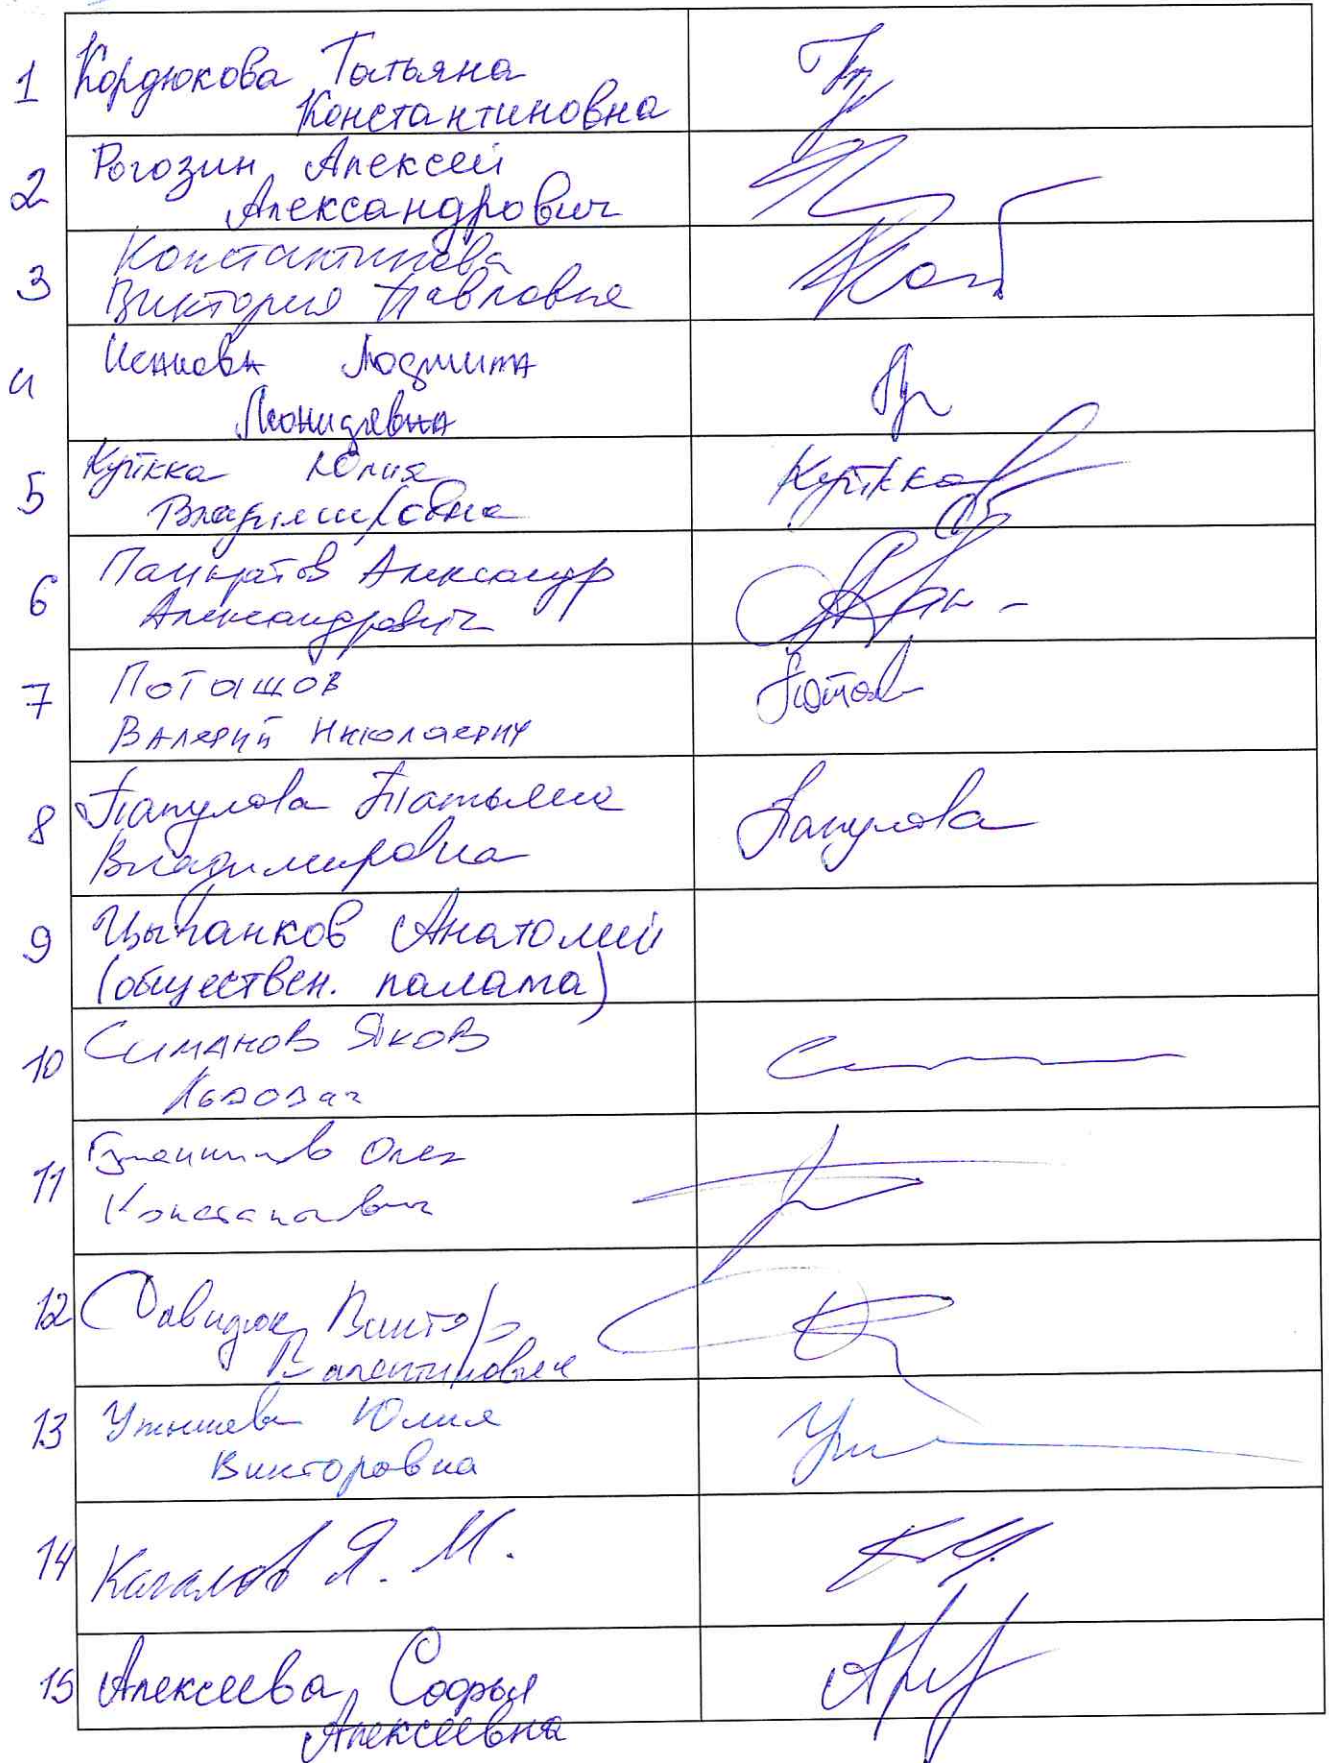 1 Кордюкова Татьяна
Константиновна
2 Рогозин Алексей
Александрович
3 Константинова
Виктория Павловна
4 Людмила
Леонидовна
5 Куйкка Юлия
Владимировна
Куйкка
6 Панкратов Александр
Александрович
7 Поташов
Валерий Николаевич
8 Папулова Татьяна
Владимировна
Папулова
9 Цыганков Анатолий
(обществен. палата)
10 Симанов Яков
Львович
11 Олег
Константинович
12 Давидюк Виктор
Валентинович
13 Юлия
Викторовна
14 Качалов Я. М.
15 Алексеева Софья
Алексеевна